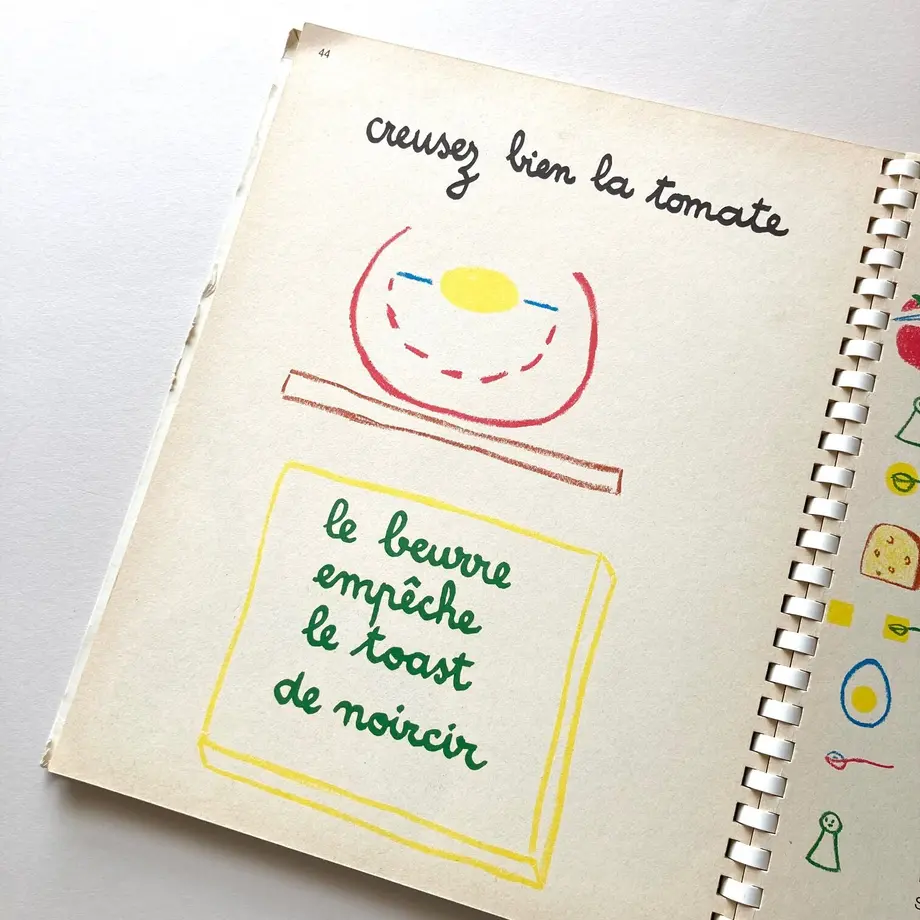 44
creusez bien la tomate
le beurre
empêche
le toast
de noircir